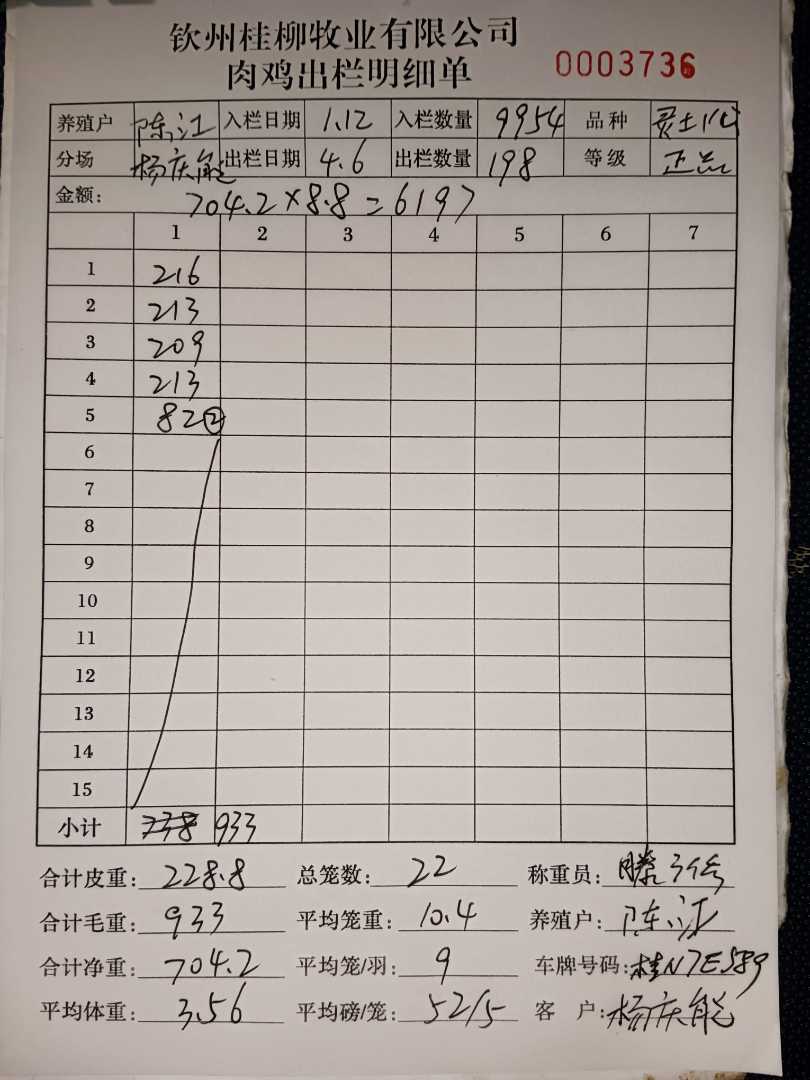 钦州桂柳牧业有限公司
肉鸡出栏明细单 0003736
养殖户 陈江 入栏日期 1.12 入栏数量 9954 品种
分场 杨庆能 出栏日期 4.6 出栏数量 198 等级 正品
金额: 704.2×8.8=6197
1 2 3 4 5 6 7
1 216
2 213
3 209
4 213
5 82②
6
7
8
9
10
11
12
13
14
15
小计 738 933
合计皮重: 228.8 总笼数: 22 称重员:
合计毛重: 933 平均笼重: 10.4 养殖户: 陈江
合计净重: 704.2 平均笼/羽: 9 车牌号码: 桂N7E589
平均体重: 3.56 平均磅/笼: 52/5 客户: 杨庆能